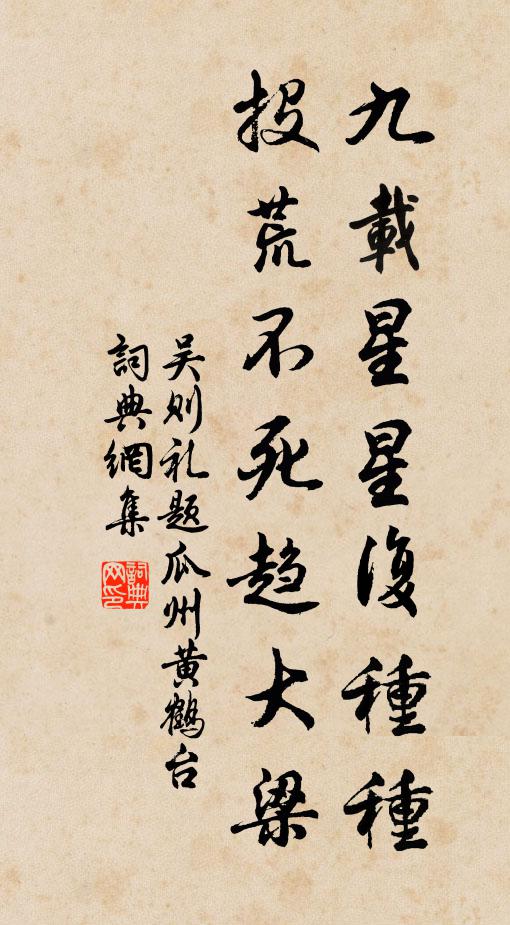 九載星星復種種
投荒不死趋大梁
吴则礼题瓜州黄鹤台
詞典網集
詞典网印